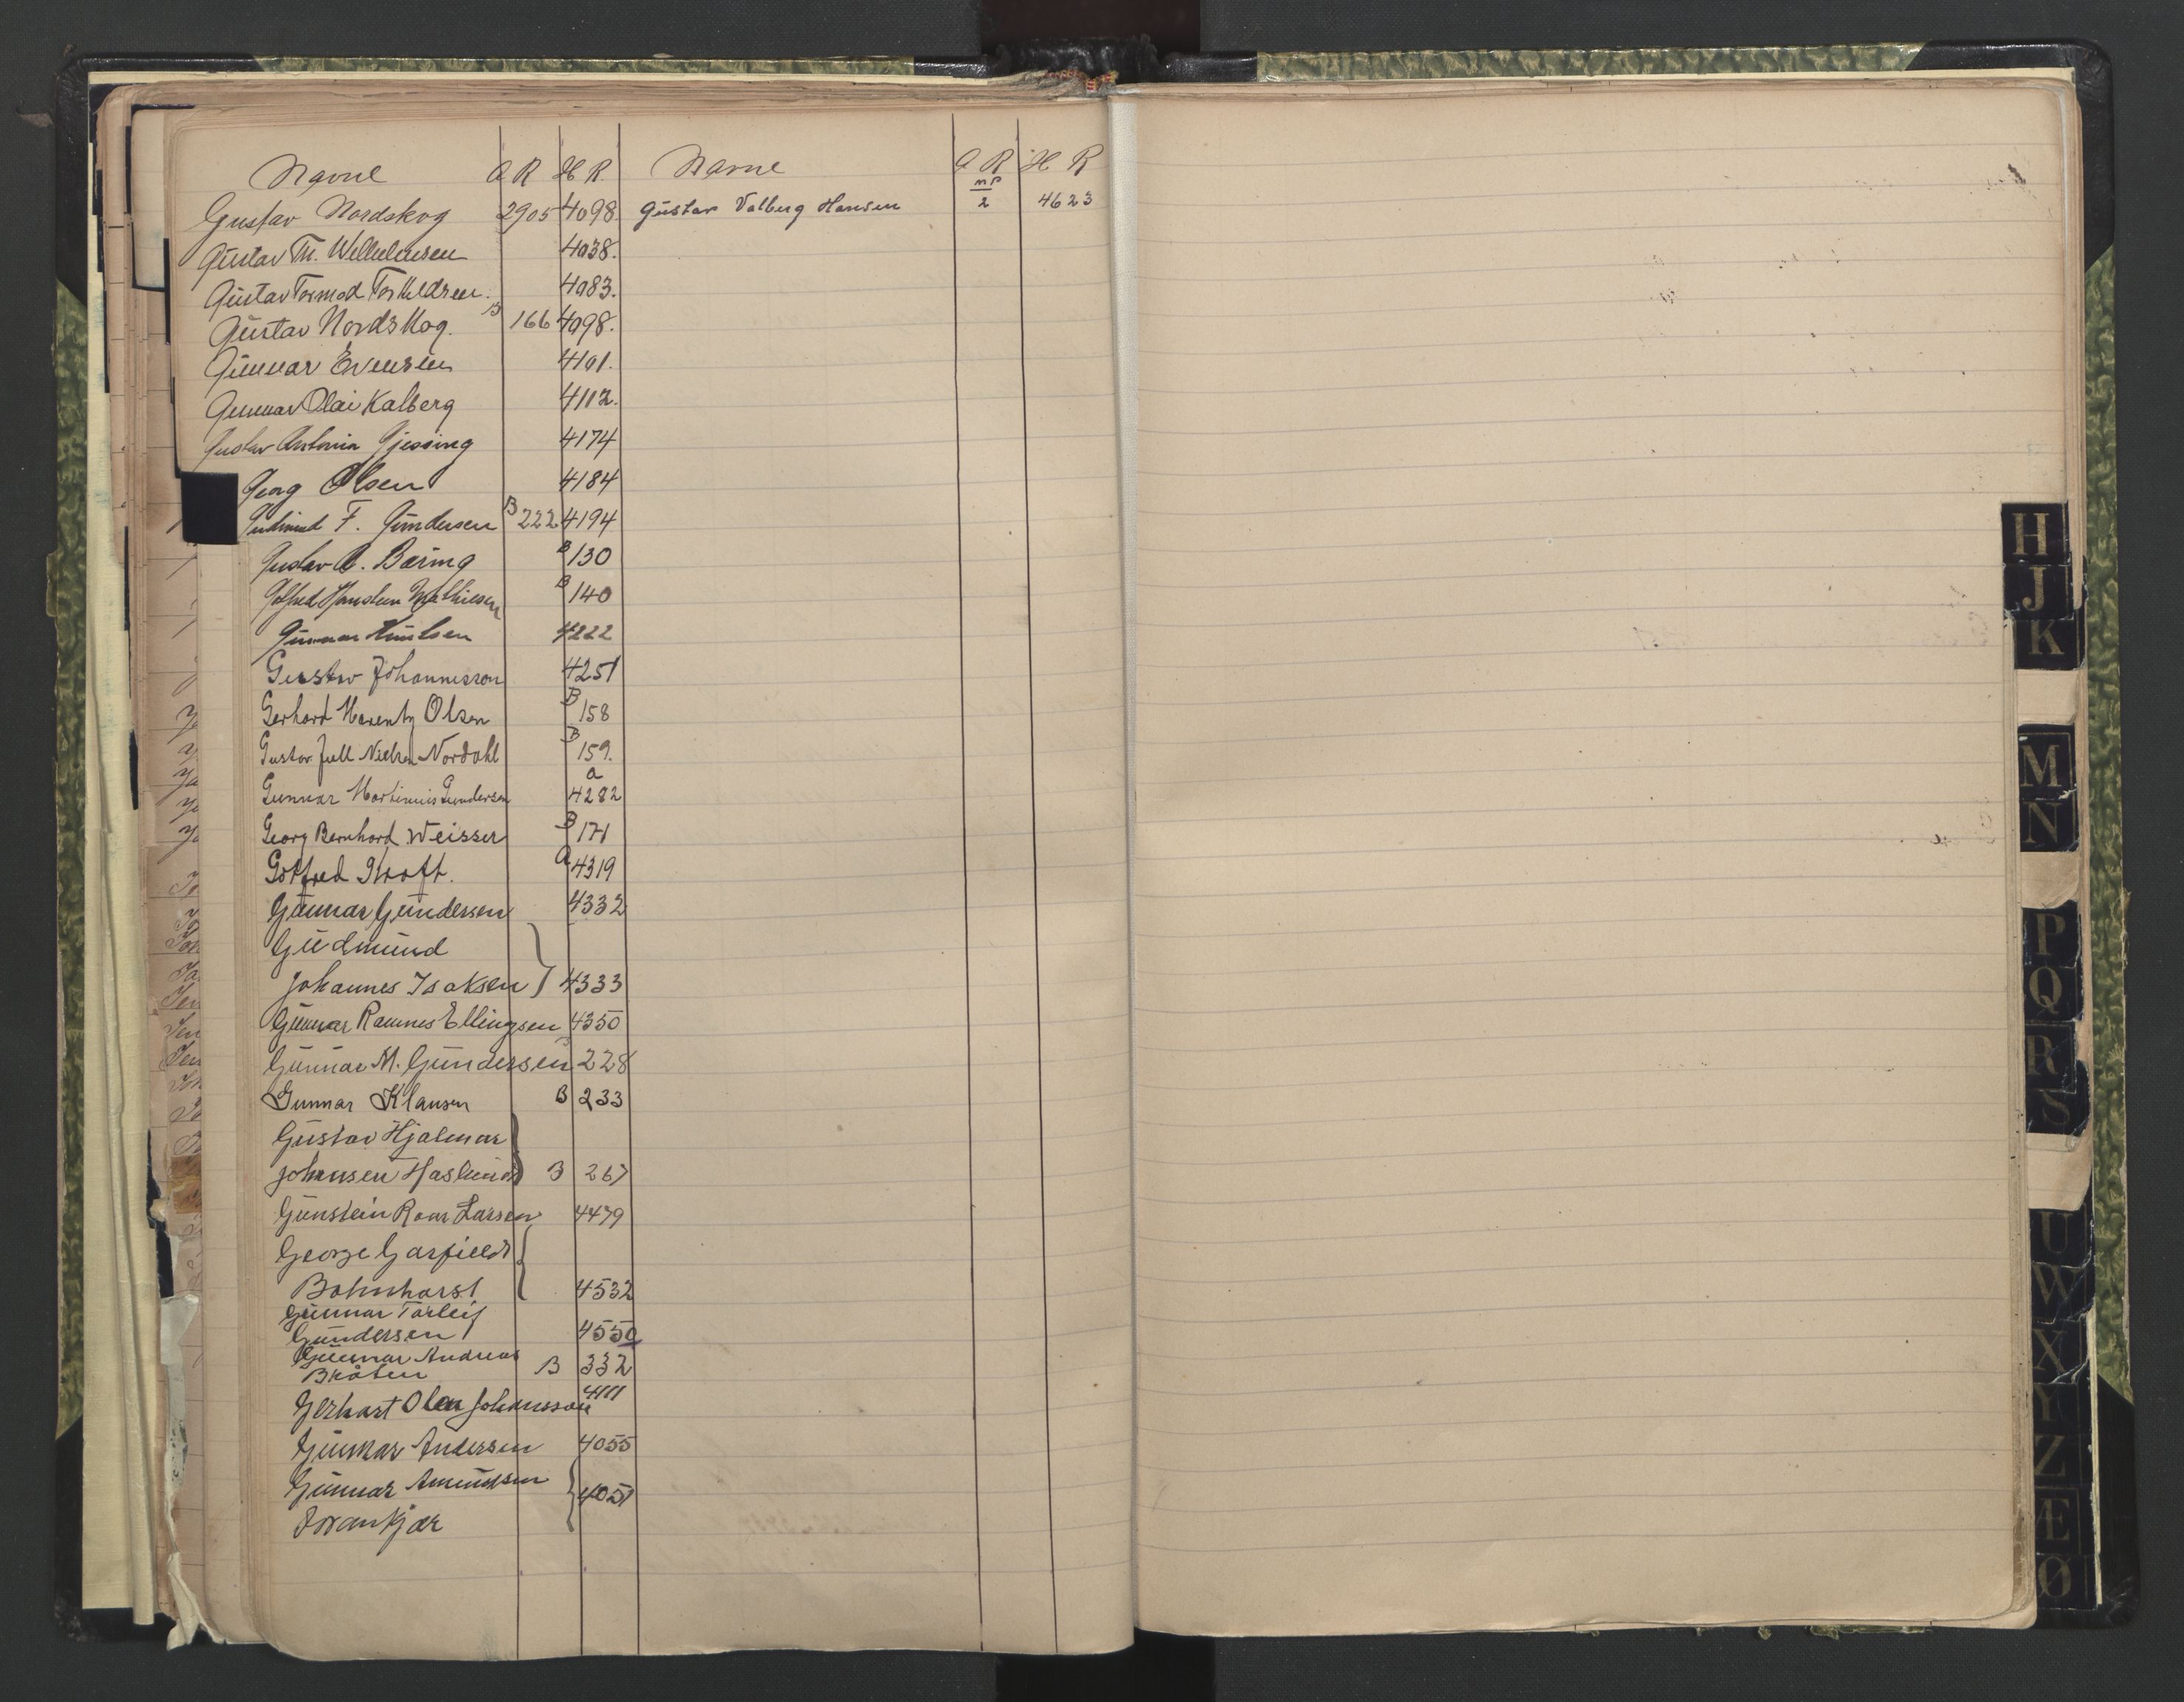 Navne A R H R.
Gustav Nordskog 2905 4098.
Gustav Th. Wilhelmsen 4038.
Gustav Tormod Torkildsen. 4083.
Gustav Nordskog. B 166 4098.
Gunnar Evensen 4101.
Gunnar Olai Kalberg 4112.
Gustav Antonin Gjessing 4174
Georg Olsen 4184
Gudmund F. Gundersen B 222 4194
Gustav A. Bæring B 130
Gotfred Hanslun Mathiesen B 140
Gunnar Knudsen 4222
Gustav Johannesson 4251
Gerhard Marentz Olsen B 158
Gustav Jull Nielsen Nordahl B 159.
Gunnar Martinius Gundersen a 4282
Georg Bernhard Weisser B 171
Gotfred Kroft. a 4319
Gunnar Gundersen 4332
Gudmund
Johannes Isaksen } 4333
Gunnar Ramnes Ellingsen 4350
Gunnar M. Gundersen B 228
Gunnar Klausen B 233
Gustav Hjalmar
Johansen Haslund } B 267
Gunstein Roar Larsen 4479
George Garfield
Bohnhorst { 4532
Gunnar Torleif
Gundersen 4550
Gunnar Andreas
Bråten B 332
Gerhart Olea Johansson 4111
Gunnar Andersen 4055
Gunnar Amundsen { 4051
Svankjær
Navne A R H R
Gustav Valberg Hansen mP 2 4623
H
J
K
M
N
P
Q
R
S
U
W
X
Y
Z
Æ
Ø